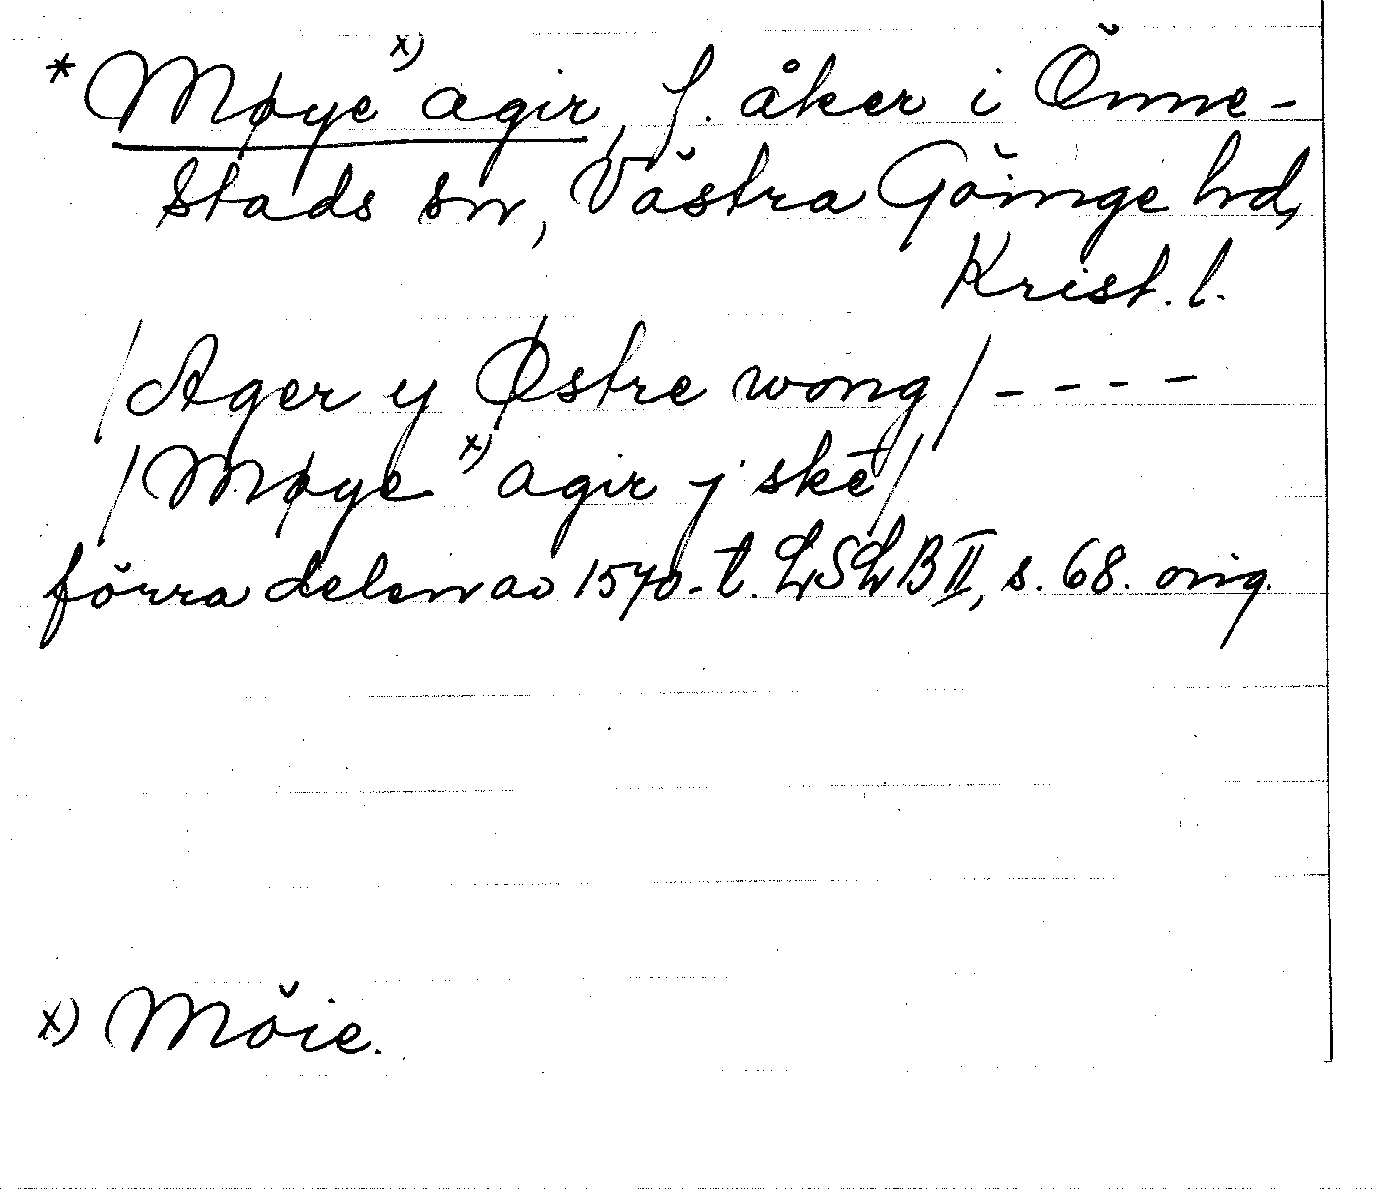 * Møye x) agir, f. åker i Önne-
stads sn, Västra Göinge hd,
Krist. l.
/Ager y Østre wong/ - - - -
/Møye x) agir j skē/
förra delen av 1570-t. LSLB II, s. 68. orig.
x) Möie.